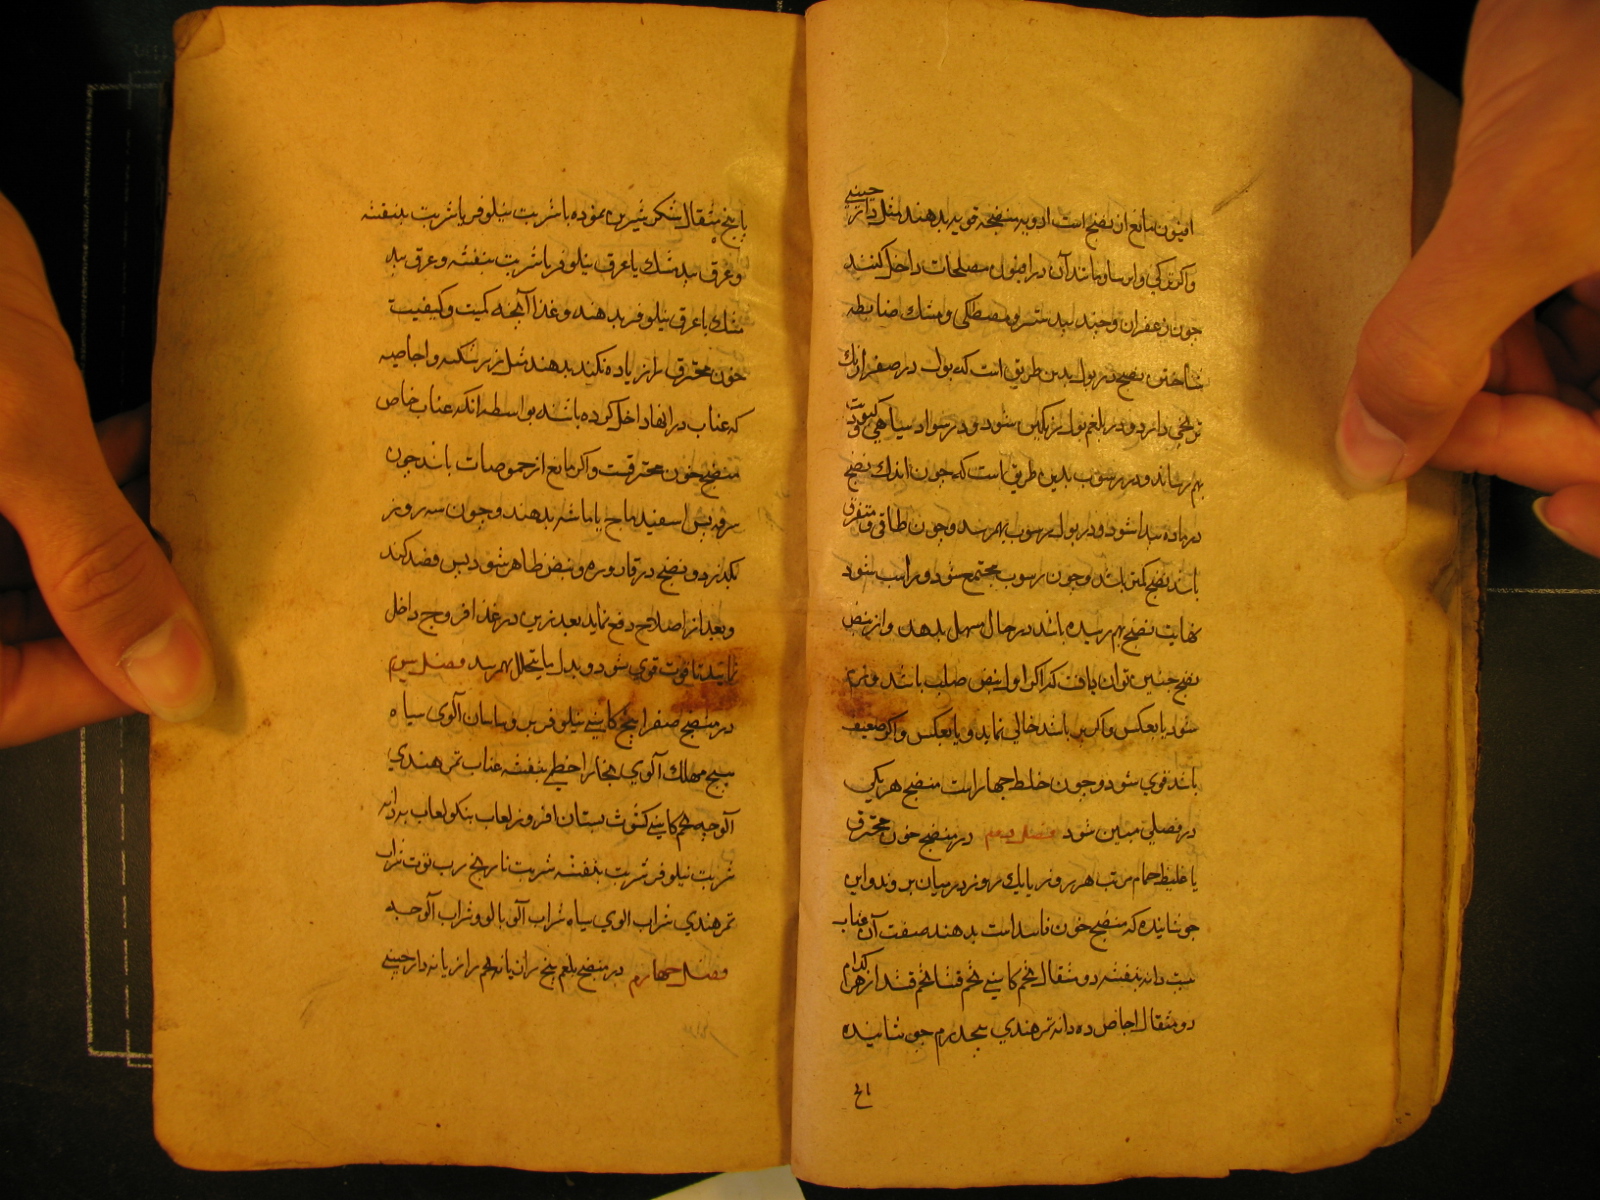 افیون مانع ان نضج است ادویه منضجه قویه بدهند مثل دارچینی
واکر ترکی وایرسا ومانند آن در افیون مصلحات داخل کنند
چون زعفران وجند بیدستر ومصطکی ومشك ضابطه
شناختن نضج در بول بدین طریق است که بول در صفرا رنك
ترنجی دارد ودر بلغم بول رنکین شود ودر سودا سیاهی وکبودت
بهم رساند ودر رسوب بدین طریق است که چون اندك نضج
در ماده پیدا شود ودر بول رسوب بهم رسد وچون طافی ومتفرق
باشد نضج کمتر باشد وچون رسوب مجتمع شود وراسب شود
نهایت نضج بهم رسیده باشد در حال مسهل بدهند واز نبض
نضج چنین توان یافت که اکر اول نبض صلب باشد ونرم
شود یا بعکس واکر پر باشد خالی نماید ویا بعکس واکر ضعیف
باشد قوی شود وچون خلط چهار است منضج هر یکی
در فصلی مبین شود فصل دوم در منضج خون محترق
یا غلیظ حمام مرتب هر روز یا یك روز در میان بروند واین
جوشانیده که منضج خون فاسد است بدهند صفت آن عناب
بیست دانه بنفشه دو مثقال تخم کاسنی تخم قثا تخم قثد از هر کدام
دو مثقال اجاص ده دانه تمر هندی پنجدرم جوشانیده
با پنج مثقال شکر شیرین نموده با شربت نیلوفر یا شربت بنفشه
وعرق بیدمشك یا عرق نیلوفر یا شربت بنفشه وعرق بید
مشك با عرق نیلوفر بدهند وغذا آنچه کمیت وکیفیت
خون محترق را زیاده نکند بدهند مثل زرشکیه واجاصیه
که عناب در انها داخل کرده باشند بواسطه انکه عناب خاص
منضج خون محترقست واکر مانع از حموضات باشد چون
سرفه پس اسفیدباج یا ماشبه بدهند وچون سه روز
بکذرد ونضج در قاروره ونبض ظاهر شود پس فصد کند
وبعد از اصلاح دفع نماید بعد زین در غذا فروج داخل
نمایند تا قوت قوی شود وبدل ما یتحلل بهم رسد فصل سیم
در منضج صفرا بیخ کاسنی نیلوفر پر وسیاوسان آلوی سیاه
بیخ مهلك آلوی بخارا خطمی بنفشه عناب تمر هندی
آلوچه تخم کاسنی کشوث بستان افروز لعاب بنکو لعاب بهدانه
شربت نیلوفر شربت بنفشه شربت نارنج رب توت شراب
تمر هندی شراب الوی سیاه شراب آلو بالو وشراب آلوچه
فصل چهارم در منضج بلغم بیخ رازیانه تخم رازیانه دارچینی